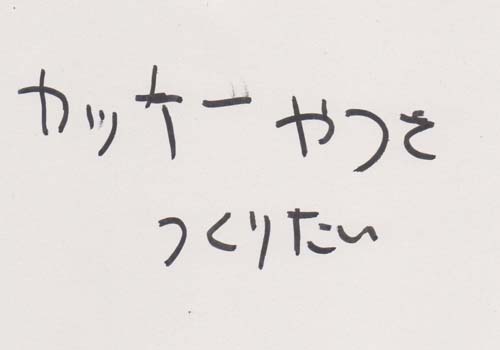 カッケー やつを
つくりたい